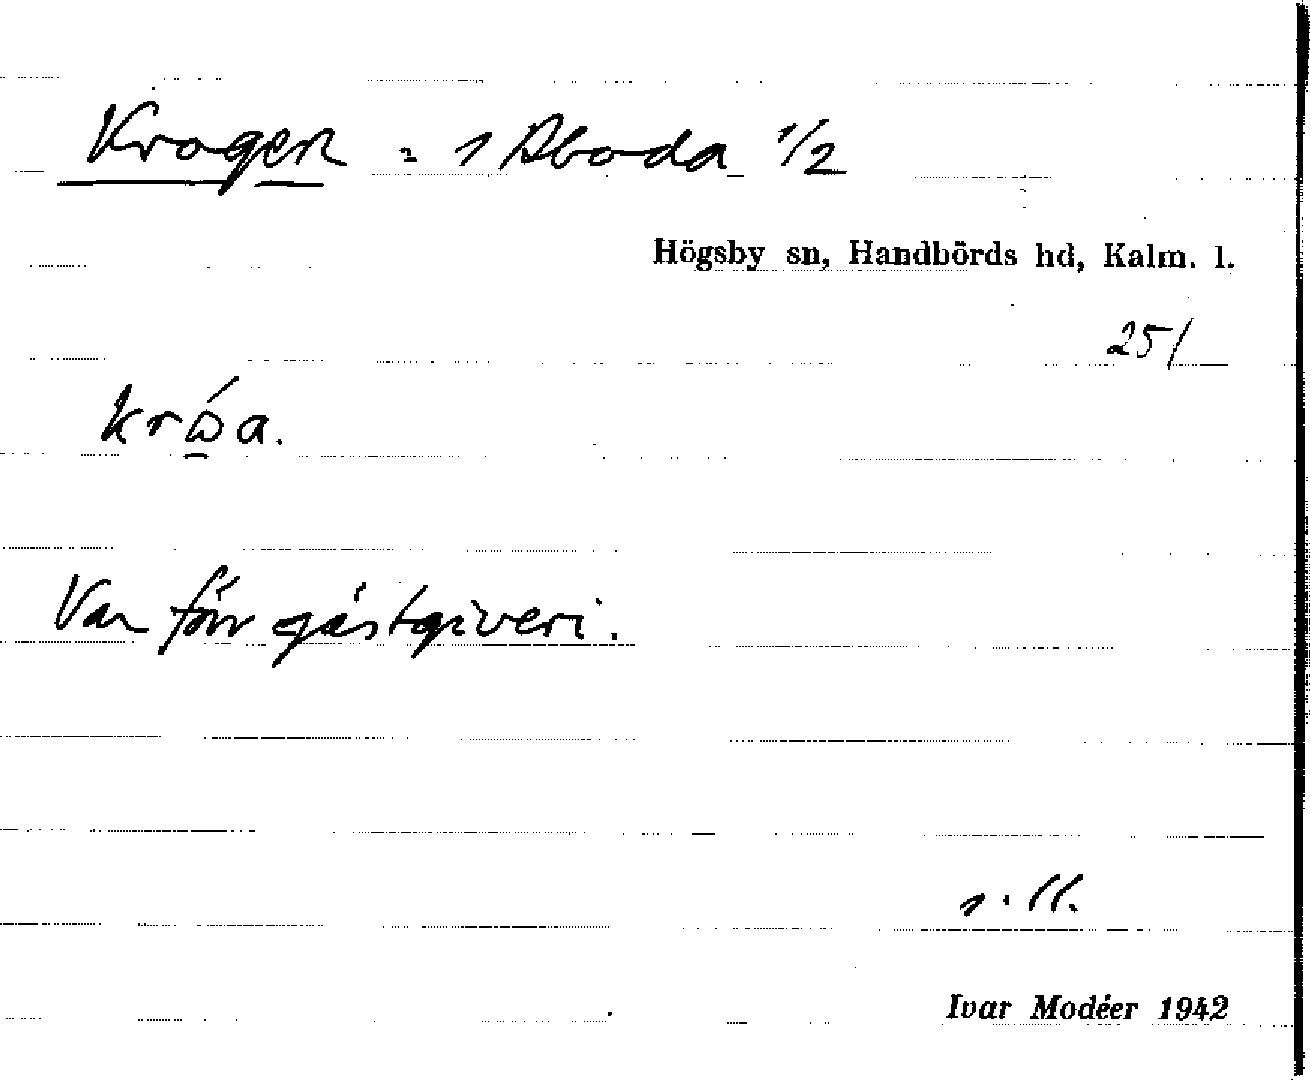 Krogen = 1 Aboda 1/2
Högsby sn, Handbörds hd, Kalm. l.
251
Var förr gästgiveri.
Ivar Modéer 1942